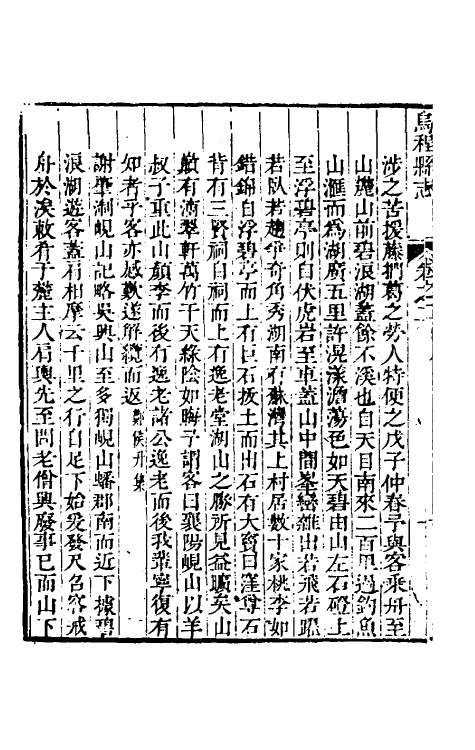 烏程縣志
涉之苦援藤捫葛之勞人特便之戊子仲春予與客乘舟至
山麓山前碧浪湖蓋餘不溪也自天目南來二百里過釣魚
山滙而為湖廣五里許滉漾澹蕩色如天碧由山左石磴上
至浮碧亭則自伏虎岩至車蓋山中間峯巒雜出若飛若躍
若臥若趨爭奇角秀湖南有蘇灣其上村居數十家桃李如
錯錦自浮碧亭而上有巨石拔土而出石有大竇曰窪尊石
背有三賢祠自祠而上有逸老堂湖山之勝所見益曠矣山
巔有滴翠軒萬竹干天綠陰如晦予謂客曰襄陽峴山以羊
叔子重此山顏李而後有逸老諸公逸老而後我輩寧復有
知者乎客亦感歎遂解纜而返 鄭侯升集
謝肇淛峴山記略吳興山至多獨峴山蟠郡南而近下據碧
浪湖遊客蓋肩相摩云千里之行自足下始爰發尺刍客戒
舟於涘敕肴于麓主人肩輿先至問老僧興廢事已而山下